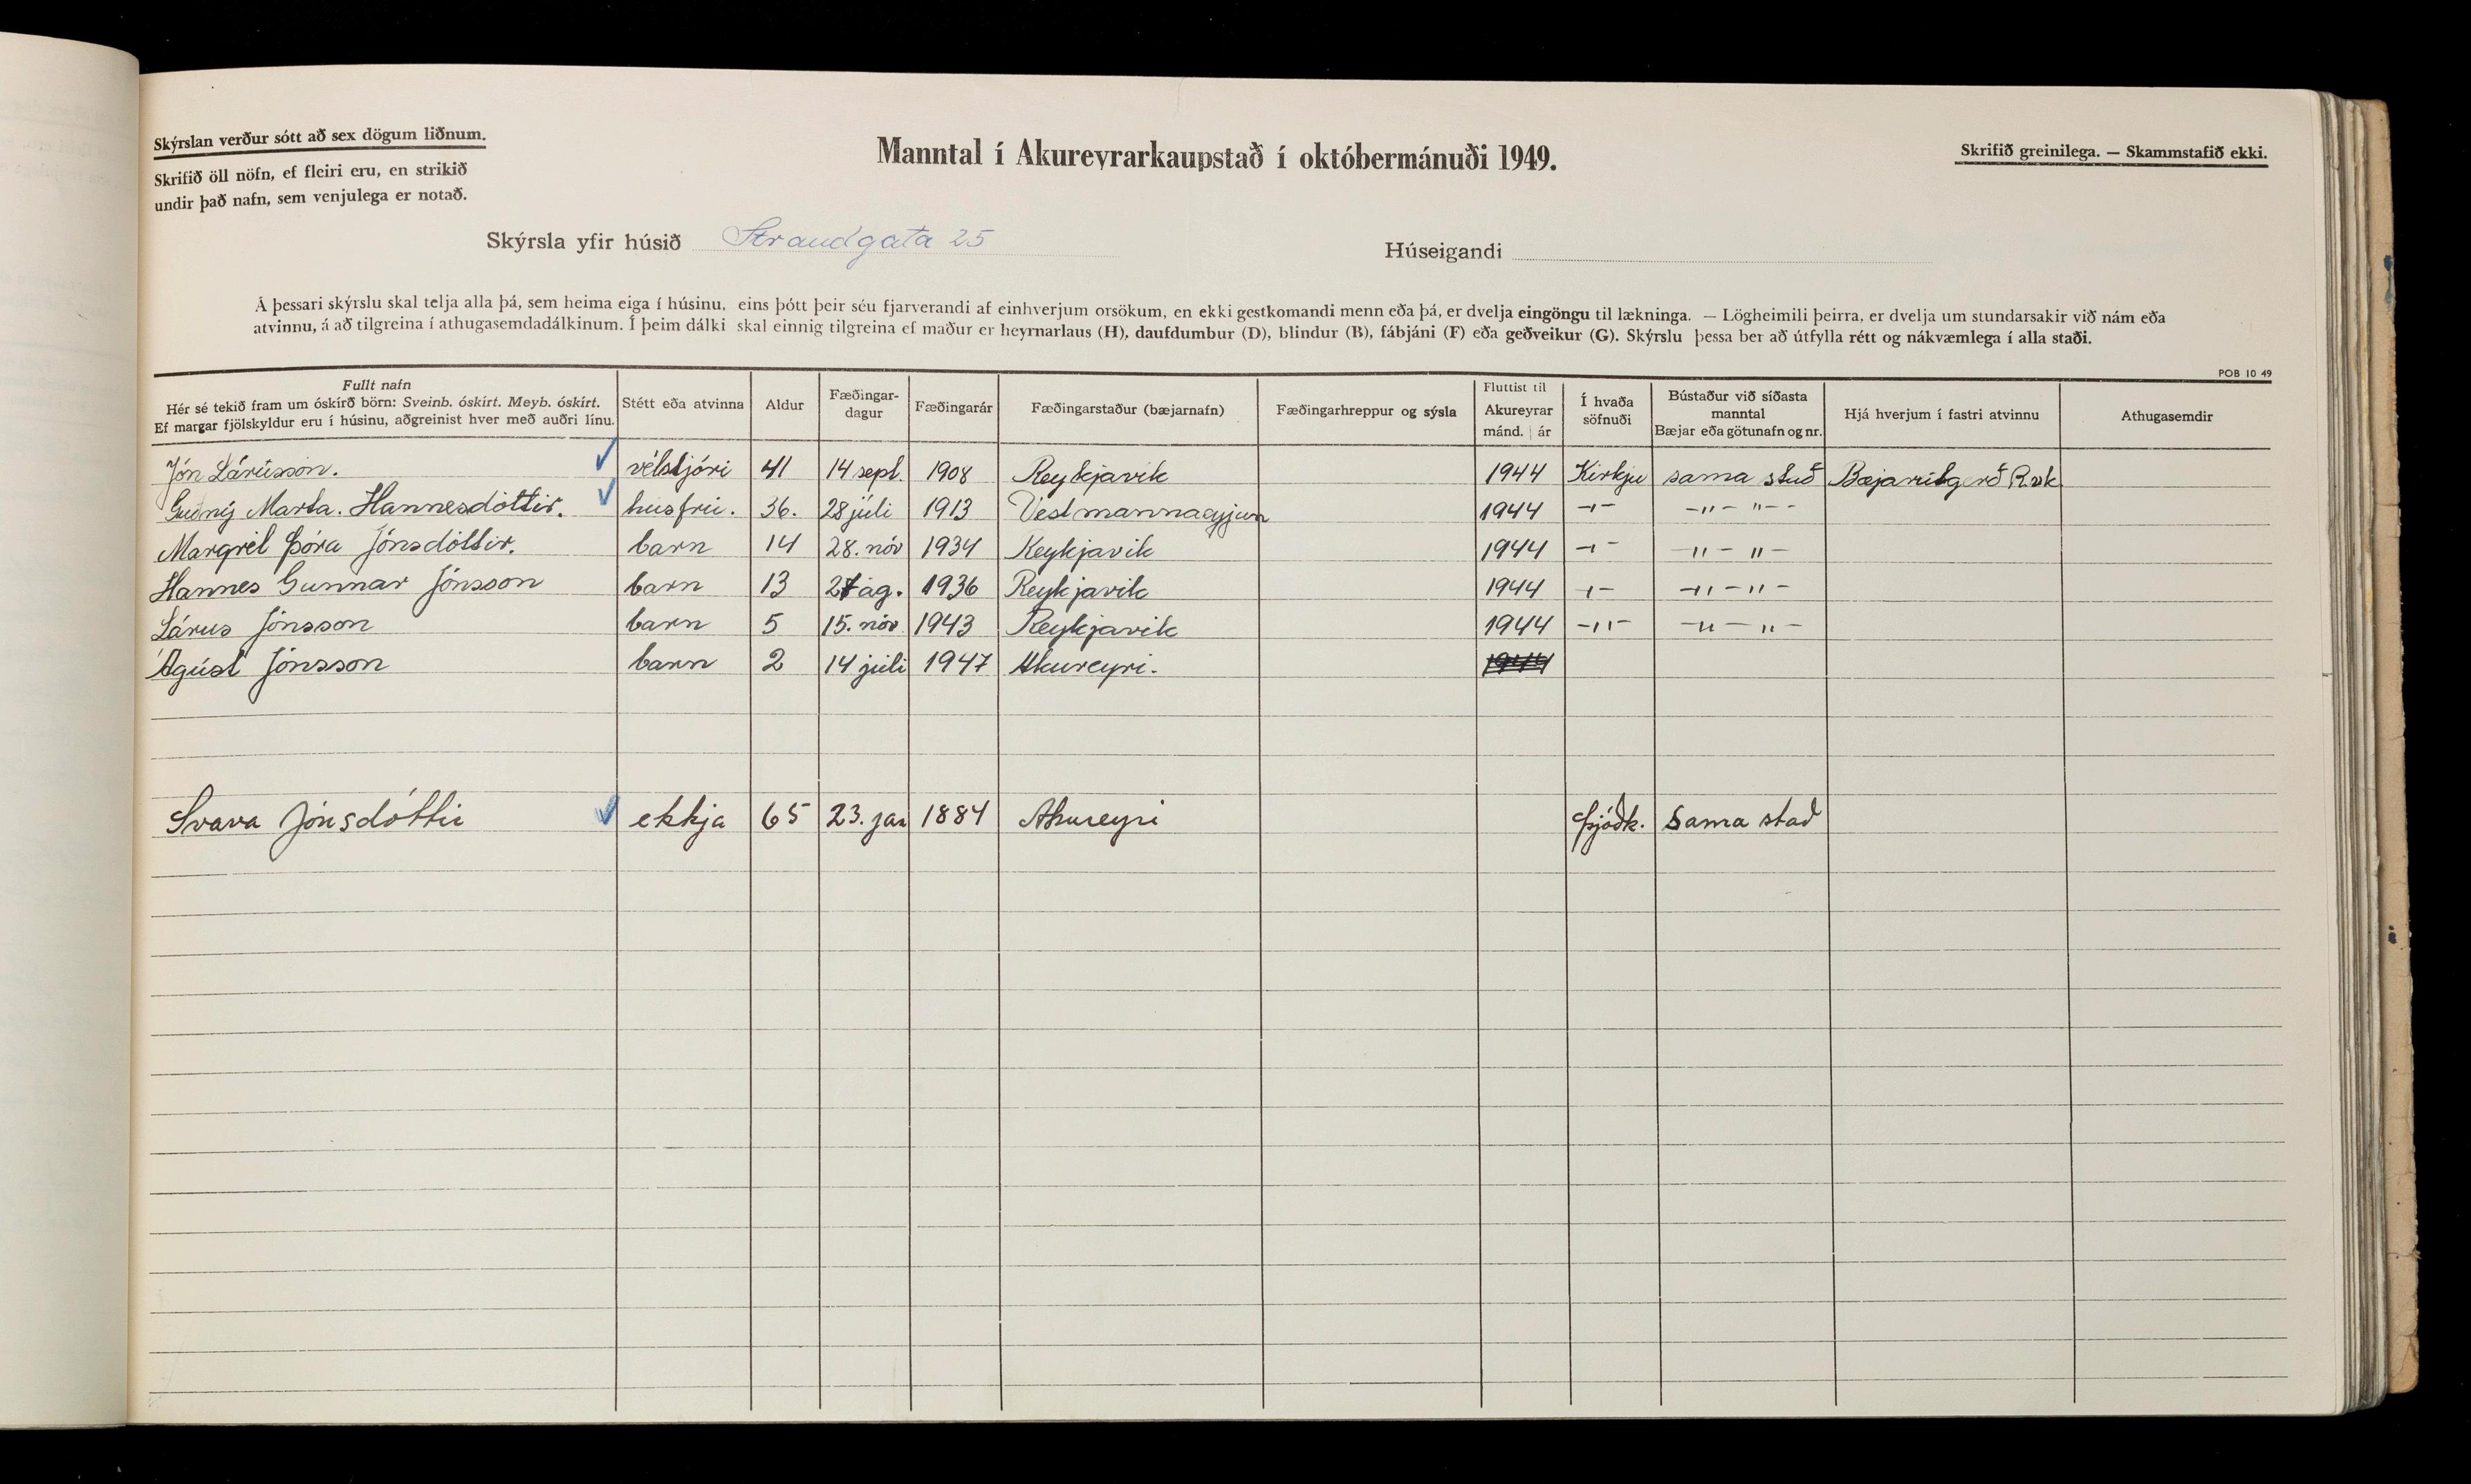 Skýrslan verður sótt að sex dögum liðnum.
Skrifið öll nöfn, ef fleiri eru, en strikið
undir það nafn, sem venjulega er notað.
Manntal í Akureyrarkaupstað í októbermánuði 1949.
Skrifið greinilega. — Skammstafið ekki.
Skýrsla yfir húsið Strandgata 25
Húseigandi
Á þessari skýrslu skal telja alla þá, sem heima eiga í húsinu, eins þótt þeir séu fjarverandi af einhverjum orsökum, en ekki gestkomandi menn eða þá, er dvelja eingöngu til lækninga. — Lögheimili þeirra, er dvelja um stundarsakir við nám eða
atvinnu, á að tilgreina í athugasemdadálkinum. Í þeim dálki skal einnig tilgreina ef maður er heyrnarlaus (H), daufdumbur (D), blindur (B), fábjáni (F) eða geðveikur (G). Skýrslu þessa ber að útfylla rétt og nákvæmlega í alla staði.
POB 10 49
Fullt nafn
Hér sé tekið fram um óskírð börn: Sveinb. óskírt. Meyb. óskírt.
Ef margar fjölskyldur eru í húsinu, aðgreinist hver með auðri línu.
Stétt eða atvinna
Aldur
Fæðingar-
dagur
Fæðingarár
Fæðingarstaður (bæjarnafn)
Fæðingarhreppur og sýsla
Fluttist til
Akureyrar
mánd. | ár
Í hvaða
söfnuði
Bústaður við síðasta
manntal
Bæjar eða götunafn og nr.
Hjá hverjum í fastri atvinnu
Athugasemdir
Jón Lárusson. vélstjóri 41 14 sept. 1908 Reykjavik 1944 Kirkju sama stað Bæjarútgerð Rvk
Guðný Marta. Hannesdóttir. húsfrú. 36. 28 júli 1913 Vestmannaeyjum 1944 -"- -"- "--
Margrét Þóra Jónsdóttir. barn 14 28. nóv 1934 Reykjavik 1944 -"- -"- "-
Hannes Gunnar Jónsson barn 13 27 ág. 1936 Reykjavik 1944 -"- -"- "-
Lárus Jónsson barn 5 15. nóv 1943 Reykjavik 1944 -"- -"- "-
Ágúst Jónsson barn 2 14 júli 1947 Akureyri. 1944
Svava Jónsdóttir ekkja 65 23. jan 1884 Akureyri Þjóðk. Sama stað